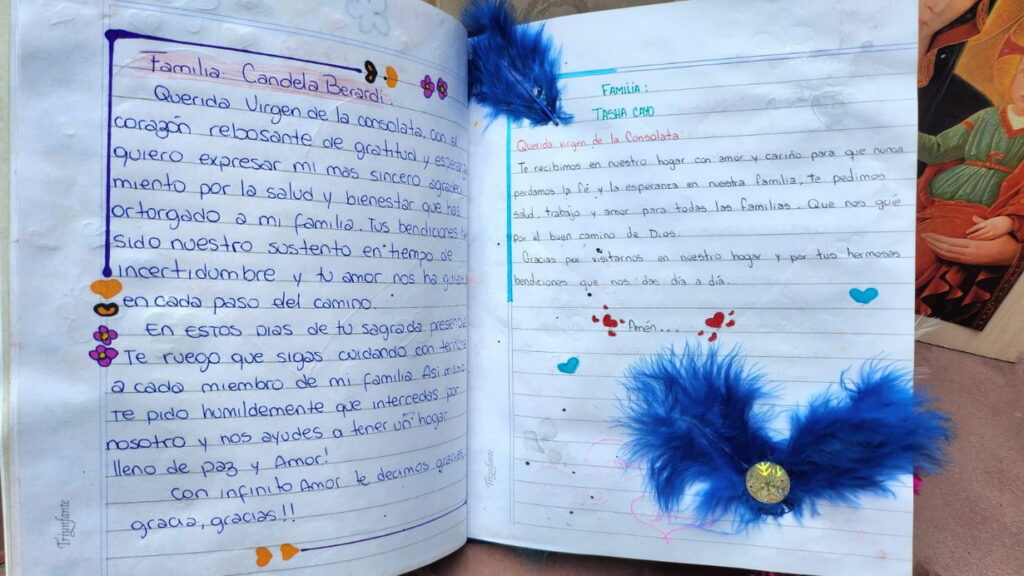 Familia: Candela Berardi.
Querida Virgen de la consolata, con el
corazón rebosante de gratitud y esperan
quiero expresar mi mas sincero agradec
miento por la salud y bienestar que has
ortorgado a mi familia. Tus bendiciones
sido nuestro sustento en tiempo de
incertidumbre y tu amor nos ha guia
en cada paso del camino.
En estos dias de tu sagrada presencia
Te ruego que sigas cuidando con ternura
a cada miembro de mi familia. Asi mismo
te pido humildemente que intercedas por
nosotro y nos ayudes a tener un hogar
lleno de paz y Amor!
con infinito Amor te decimos gracias,
gracia, gracias!!
Triunfante
Familia:
Tasha Cayo
Querida virgen de la Consolata:
Te recibimos en nuestro hogar con amor y cariño para que nunca
perdamos la fé y la esperanza en nuestra familia, te pedimos
salud, trabajo y amor para todas las familias. Que nos guié
por el buen camino de Dios.
Gracias por visitarnos en nuestro hogar y por tus hermosas
bendiciones que nos das día a día.
Amén...
Triunfante